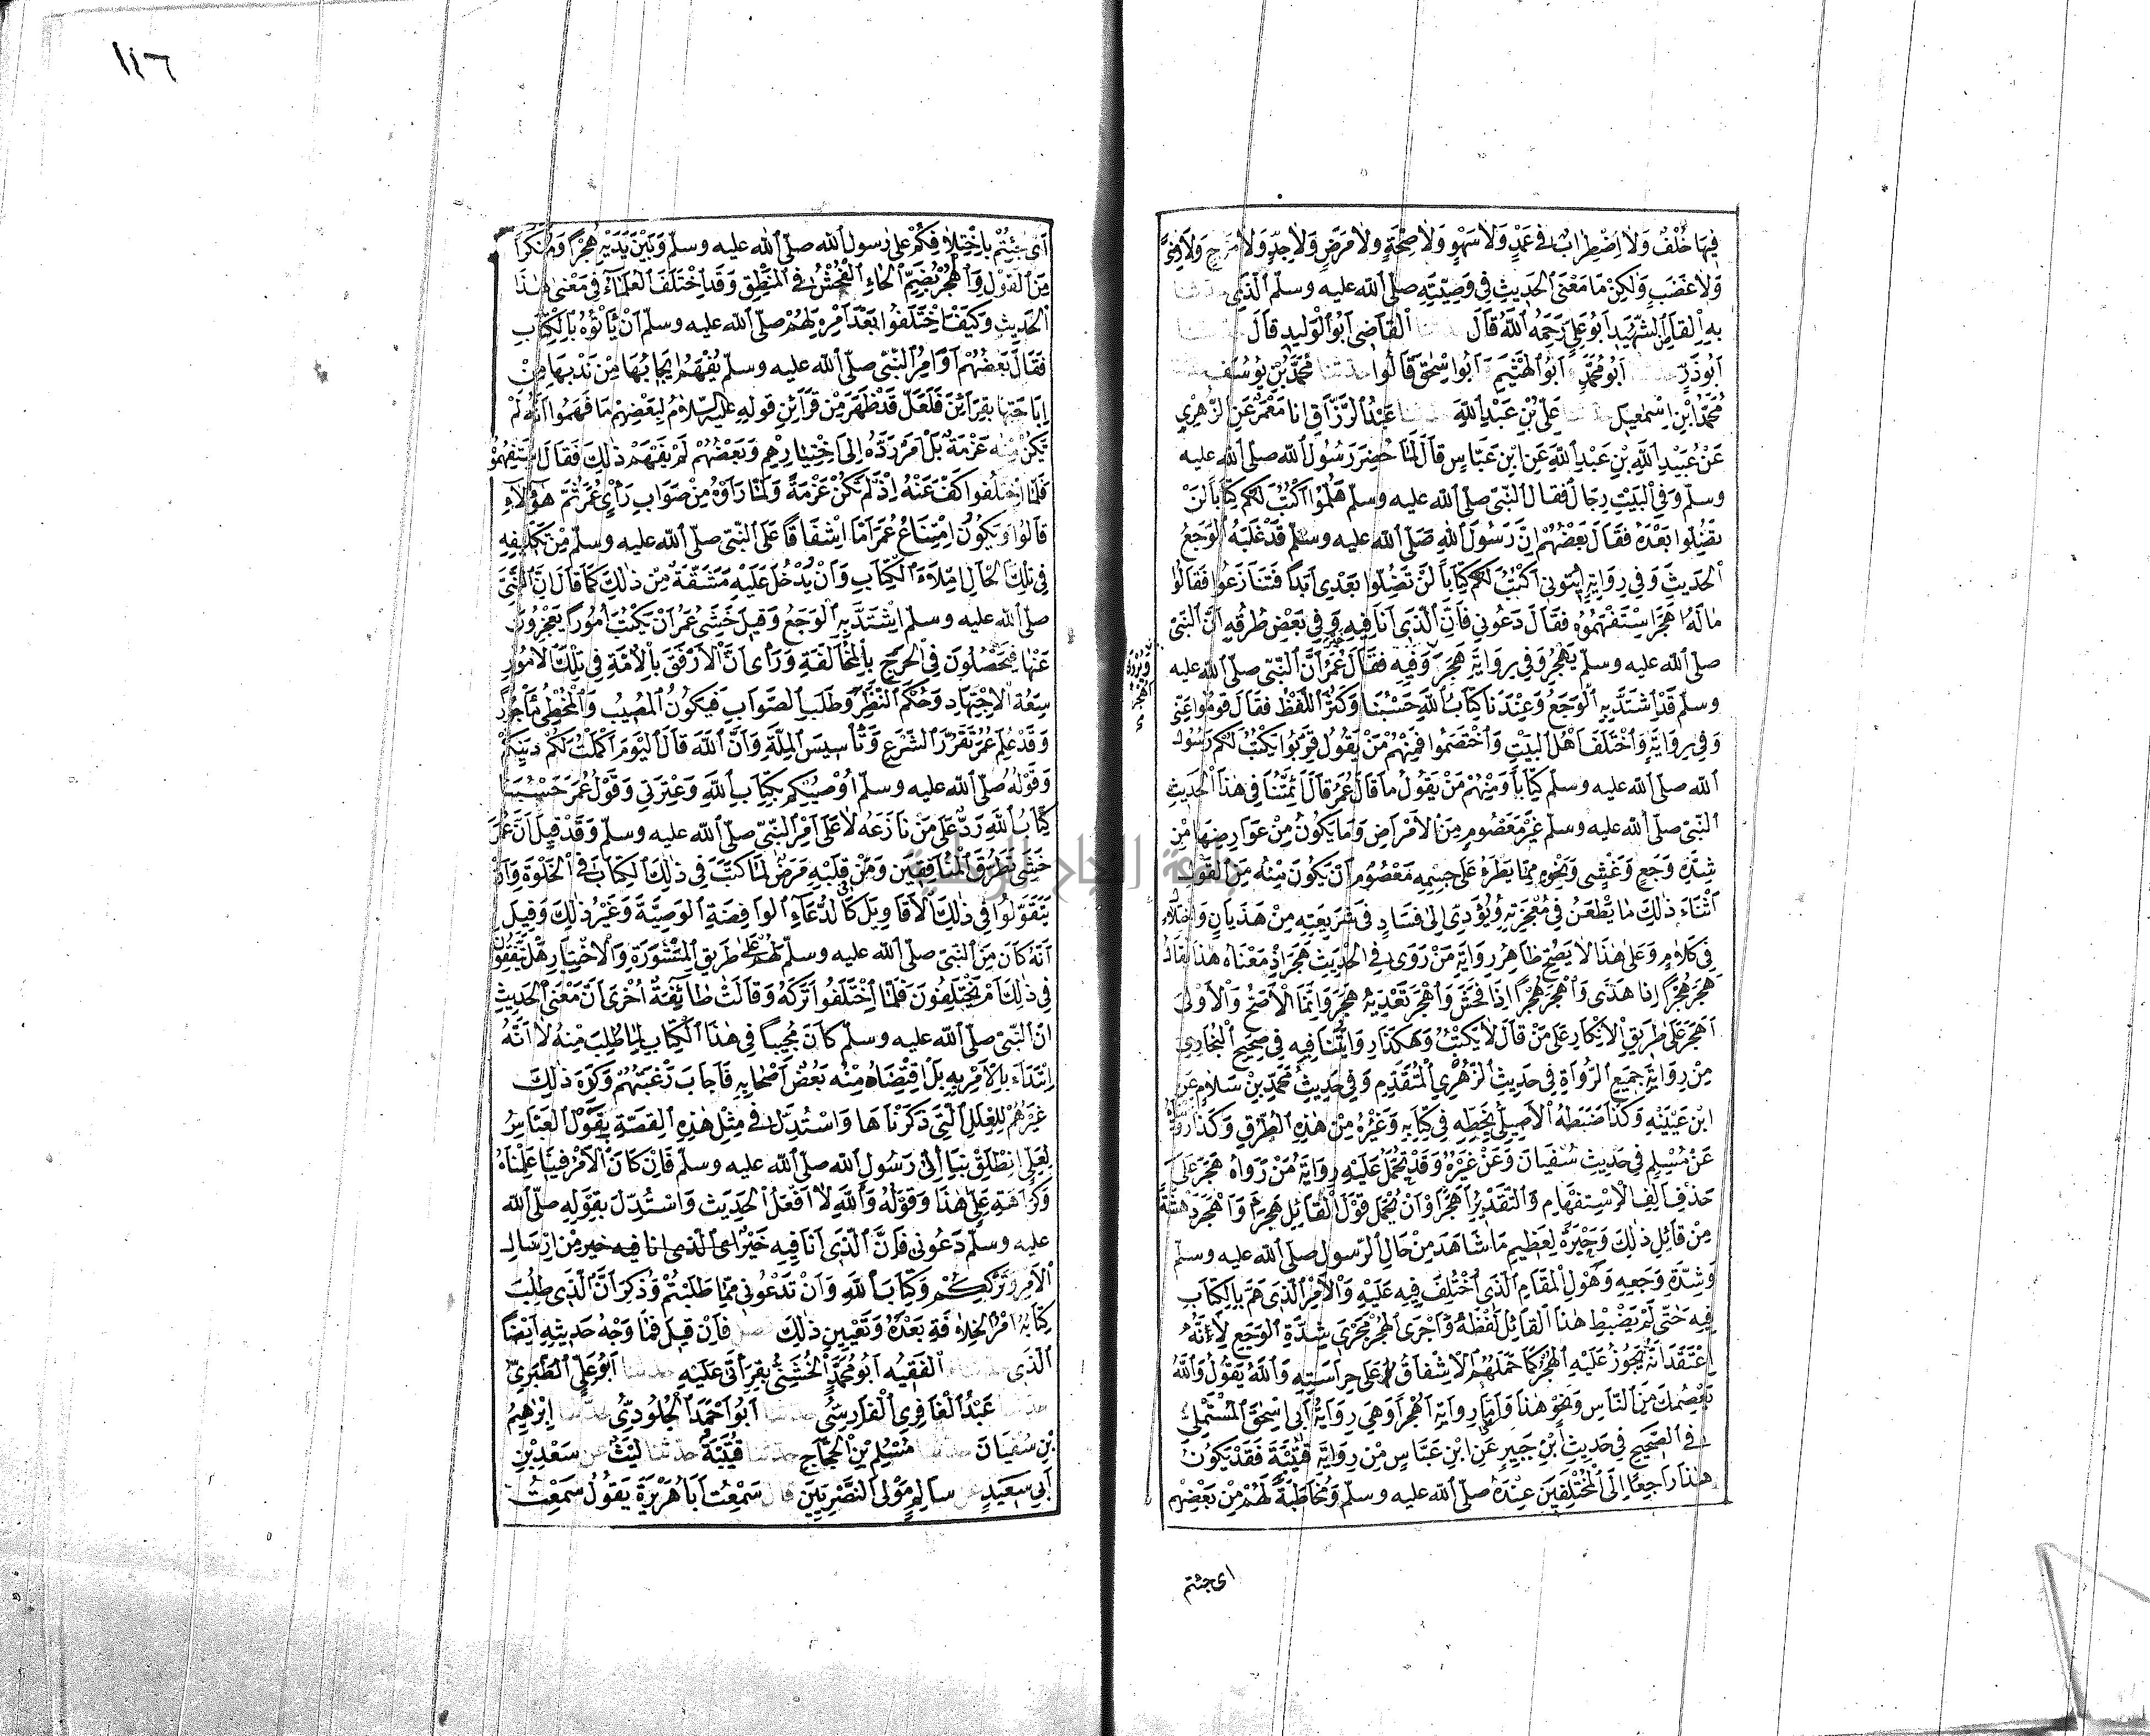 ١١٦
فِيهَا خُلْفٌ وَلَا اضْطِرَابٌ فِي عَمْدٍ وَلَا سَهْوٍ وَلَا صِحَّةٍ وَلَا مَرَضٍ وَلَا جِدٍّ وَلَا مَزْحٍ وَلَا رِضًى
وَلَا غَضَبٍ وَلٰكِنْ مَا مَعْنَى الْحَدِيثِ فِي وَصِيَّتِهِ صلّى الله عليه وسلّم الَّذِي حدثنا
بِهِ الْقَاضِي الشَّهِيدُ أَبُو عَلِيٍّ رَحِمَهُ اللهُ قَالَ الْقَاضِي أَبُو الْوَلِيدِ قَالَ
أَبُو ذَرٍّ أَبُو مُحَمَّدٍ وَأَبُو الْهَيْثَمِ وَأَبُو إِسْحَقَ قَالُوا حدثنا مُحَمَّدُ بْنُ يُوسُفَ
مُحَمَّدُ ابْنِ إِسْمٰعِيلَ عَلِيُّ بْنُ عَبْدِ اللهِ عَبْدُ الرَّزَّاقِ انا مَعْمَرٌ عَنِ الزُّهْرِي
عَنْ عُبَيْدِ اللهِ بْنِ عَبْدِ اللهِ عَنِ ابْنِ عَبَّاسٍ قَالَ لَمَّا حُضِرَ رَسُولُ اللهِ صلّى الله عليه
وسلّم وَفِي الْبَيْتِ رِجَالٌ فَقَالَ النَّبِيُّ صلّى الله عليه وسلّم هَلُمُّوا أَكْتُبْ لَكُمْ كِتَابًا لَنْ
تَضِلُّوا بَعْدَهُ فَقَالَ بَعْضُهُمْ إِنَّ رَسُولَ اللهِ صَلّى الله عليه وسلّم قَدْ غَلَبَهُ الْوَجَعُ
الْحَدِيثَ وَفِي رِوَايَةٍ ايتُونِي أَكْتُبْ لَكُمْ كِتَابًا لَنْ تَضِلُّوا بَعْدِي أَبَدًا فَتَنَازَعُوا فَقَالُوا
مَالَهُ أَهَجَرَ اسْتَفْهِمُوهُ فَقَالَ دَعُونِي فَإِنَّ الَّذِي أَنَا فِيهِ خَيْرٌ وَفِي بَعْضِ طُرُقِهِ أَنَّ النَّبِيَّ
صلّى الله عليه وسلّم يَهْجُرُ وَفِي رِوَايَةٍ هَجَرَ وَفِيهِ فَقَالَ عُمَرُ إِنَّ النَّبِيَّ صلّى الله عليه
وسلّم قَدْ اشْتَدَّ بِهِ الْوَجَعُ وَعِنْدَنَا كِتَابُ اللهِ حَسْبُنَا وَكَثُرَ اللَّغَطُ فَقَالَ قُومُوا عَنِّي
وَفِي رِوَايَةٍ وَاخْتَلَفَ أَهْلُ الْبَيْتِ وَاخْتَصَمُوا فَمِنْهُمْ مَنْ يَقُولُ قَرِّبُوا يَكْتُبْ لَكُمْ رَسُولُ
الله صلّى الله عليه وسلّم كِتَابًا وَمِنْهُمْ مَنْ يَقُولُ مَا قَالَ عُمَرُ قَالَ أَئِمَّتُنَا فِي هٰذَا الْحَدِيثِ
النَّبِيُّ صلّى الله عليه وسلّم غَيْرُ مَعْصُومٍ مِنَ الْأَمْرَاضِ وَمَا يَكُونُ مِنْ عَوَارِضِهَا مِنْ
شِدَّةِ وَجَعٍ وَغَشْيٍ وَنَحْوِهِ مِمَّا يَطْرَءُ عَلَى جِسْمِهِ مَعْصُومٌ أَنْ يَكُونَ مِنْهُ مِنَ الْقَوْلِ
أَثْنَاءَ ذٰلِكَ مَا يَطْعَنُ فِي مُعْجِزَتِهِ وَيُؤَدِّي إِلَى فَسَادٍ فِي شَرِيعَتِهِ مِنْ هَذَيَانٍ وَاخْتِلَالٍ
فِي كَلَامٍ وَعَلَى هٰذَا لَا يَصِحُّ ظَاهِرُ رِوَايَةِ مَنْ رَوَى فِي الْحَدِيثِ هَجَرَ إِذْ مَعْنَاهُ هَذَى يُقَالُ
هَجَرَ هُجْرًا إِذَا هَذَى وَأَهْجَرَ هُجْرًا إِذَا فَحَشَ وَأَهْجَرَ تَعْدِيَةُ هَجَرَ وَإِنَّمَا الْأَصَحُّ وَالْأَوْلَى
أَهَجَرَ عَلَى طَرِيقِ الْإِنْكَارِ عَلَى مَنْ قَالَ لَا يَكْتُبْ وَهَكَذَا رِوَايَتُنَا فِيهِ فِي صَحِيحِ الْبُخَارِي
مِنْ رِوَايَةِ جَمِيعِ الرُّوَاةِ فِي حَدِيثِ الزُّهْرِيِّ الْمُتَقَدِّمِ وَفِي حَدِيثِ مُحَمَّدِ بْنِ سَلَامٍ عَنِ
ابْنِ عُيَيْنَةَ وَكَذَا ضَبَطَهُ الْأَصِيلِيُّ بِخَطِّهِ فِي كِتَابِهِ وَغَيْرُهُ مِنْ هٰذِهِ الطُّرُقِ وَكَذَا رَوَيْنَاهُ
عَنْ مُسْلِمٍ فِي حَدِيثِ سُفْيَانَ وَعَنْ غَيْرِهِ وَقَدْ يُحْمَلُ عَلَيْهِ رِوَايَةُ مَنْ رَوَاهُ هَجَرَ عَلَى
حَذْفِ أَلِفِ الْاِسْتِفْهَامِ وَالتَّقْدِيرُ أَهَجَرَ أَوْ أَنْ يُحْمَلَ قَوْلُ الْقَائِلِ هَجَرَ وَأَهْجَرَ دَهْشَةً
مِنْ قَائِلِ ذٰلِكَ وَحَيْرَةً لِعَظِيمِ مَا شَاهَدَ مِنْ حَالِ الرَّسُولِ صلّى الله عليه وسلّم
وَشِدَّةِ وَجَعِهِ وَهَوْلِ الْمَقَامِ الَّذِي اخْتُلِفَ فِيهِ عَلَيْهِ وَالْأَمْرِ الَّذِي هَمَّ بِالْكِتَابِ
فِيهِ حَتَّى لَمْ يَضْبِطْ هٰذَا الْقَائِلُ لَفْظَهُ وَأَجْرَى الْهُجْرَ مَجْرَى شِدَّةِ الْوَجَعِ لَا أَنَّهُ
اعْتَقَدَ أَنَّهُ يَجُوزُ عَلَيْهِ الْهُجْرُ كَمَا حَمَلَهُمُ الْإِشْفَاقُ عَلَى حِرَاسَتِهِ وَاللهُ يَقُولُ وَاللهُ
يَعْصِمُكَ مِنَ النَّاسِ وَنَحْوَ هٰذَا وَأَمَّا رِوَايَةُ أَهُجْرًا وَهِيَ رِوَايَةُ أَبِي إِسْحَقَ الْمُسْتَمْلِيِّ
فِي الصَّحِيحِ فِي حَدِيثِ ابْنِ جُبَيْرٍ عَنِ ابْنِ عَبَّاسٍ مِنْ رِوَايَةِ قُتَيْبَةَ فَقَدْ يَكُونُ
هٰذَا رَاجِعًا إِلَى الْمُخْتَلِفِينَ عِنْدَهُ صلّى الله عليه وسلّم وَمُخَاطَبَةً لَهُمْ مِنْ بَعْضِهِمْ
اى جئتم
أَيْ جِئْتُمْ بِاخْتِلَافِكُمْ عَلَى رَسُولِ الله صلّى الله عليه وسلّم وَبَيْنَ يَدَيْهِ هُجْرًا وَمُنْكَرًا
مِنَ الْقَوْلِ وَالْهُجْرُ بِضَمِّ الْهَاءِ الْفُحْشُ فِي الْمَنْطِقِ وَقَدِ اخْتَلَفَ الْعُلَمَاءُ فِي مَعْنَى هٰذَا
الْحَدِيثِ وَكَيْفَ اخْتَلَفُوا بَعْدَ أَمْرِهِ لَهُمْ صلّى الله عليه وسلّم أَنْ يَأْتُوهُ بِالْكِتَابِ
فَقَالَ بَعْضُهُمْ أَوَامِرُ النَّبِيِّ صلّى الله عليه وسلّم يُفْهَمُ إِيجَابُهَا مِنْ نَدْبِهَا مِنْ
إِبَاحَتِهَا بِقَرَائِنَ فَلَعَلَّ قَدْ ظَهَرَ مِنْ قَرَائِنِ قَوْلِهِ عليه السّلام لِبَعْضِهِمْ مَا فَهِمُوا أَنَّهُ لَمْ
يَكُنْ مِنْهُ عَزْمَةٌ بَلْ أَمْرٌ رَدَّهُ إِلَى اخْتِيَارِهِمْ وَبَعْضُهُمْ لَمْ يَفْهَمْ ذٰلِكَ فَقَالَ اسْتَفْهِمُوهُ
فَلَمَّا اخْتَلَفُوا كَفَّ عَنْهُ إِذْ لَمْ تَكُنْ عَزْمَةً وَلَمَّا رَأَوْهُ مِنْ صَوَابِ رَأْيِ عُمَرَ ثُمَّ هٰؤُلَاءِ
قَالُوا وَيَكُونُ امْتِنَاعُ عُمَرَ إِمَّا إِشْفَاقًا عَلَى النَّبِيِّ صلّى الله عليه وسلّم مِنْ تَكْلِيفِهِ
فِي تِلْكَ الْحَالِ إِمْلَاءَ الْكِتَابِ وَأَنْ يَدْخُلَ عَلَيْهِ مَشَقَّةٌ مِنْ ذٰلِكَ كَمَا قَالَ إِنَّ النَّبِيَّ
صلّى الله عليه وسلّم اشْتَدَّ بِهِ الْوَجَعُ وَقِيلَ خَشِيَ عُمَرُ أَنْ يَكْتُبَ أُمُورًا يَعْجِزُونَ
عَنْهَا فَيَحْصُلُونَ فِي الْحَرَجِ بِالْمُخَالَفَةِ وَرَأَى أَنَّ الْأَرْفَقَ بِالْأُمَّةِ فِي تِلْكَ الْأُمُورِ
سِعَةُ الْاِجْتِهَادِ وَحُكْمُ النَّظَرِ وَطَلَبِ الصَّوَابِ فَيَكُونُ الْمُصِيبُ وَالْمُخْطِئُ مَأْجُورًا
وَقَدْ عَلِمَ عُمَرُ تَقَرُّرَ الشَّرْعِ وَتَأْسِيسَ الْمِلَّةِ وَأَنَّ اللهَ قَالَ الْيَوْمَ أَكْمَلْتُ لَكُمْ دِينَكُمْ
وَقَوْلُهُ صلّى الله عليه وسلّم أُوصِيكُمْ بِكِتَابِ اللهِ وَعِتْرَتِي وَقَوْلُ عُمَرَ حَسْبُنَا
كِتَابُ اللهِ رَدٌّ عَلَى مَنْ نَازَعَهُ لَا عَلَى أَمْرِ النَّبِيِّ صلّى الله عليه وسلّم وَقَدْ قِيلَ إِنَّ عُمَرَ
خَشِيَ تَطَرُّقَ الْمُنَافِقِينَ وَمَنْ فِي قَلْبِهِ مَرَضٌ لِمَا كُتِبَ فِي ذٰلِكَ الْكِتَابِ فِي الْخَلْوَةِ وَأَنْ
يَتَقَوَّلُوا فِي ذٰلِكَ الْأَقَاوِيلَ كَادِّعَاءِ الرَّافِضَةِ الْوَصِيَّةَ وَغَيْرُ ذٰلِكَ وَقِيلَ
أَنَّهُ كَانَ مِنَ النَّبِيِّ صلّى الله عليه وسلّم لَهُمْ عَلَى طَرِيقِ الْمَشُورَةِ وَالْاِخْتِيَارِ هَلْ يَتَّفِقُونَ
فِي ذٰلِكَ أَمْ يَخْتَلِفُونَ فَلَمَّا اخْتَلَفُوا تَرَكَهُ وَقَالَتْ طَائِفَةٌ أُخْرَى أَنَّ مَعْنَى الْحَدِيثِ
أَنَّ النَّبِيَّ صلّى الله عليه وسلّم كَانَ مُجِيبًا فِي هٰذَا الْكِتَابِ لِمَا طُلِبَ مِنْهُ لَا أَنَّهُ
ابْتَدَاءَ بِالْأَمْرِ بِهِ بَلِ اقْتَضَاهُ مِنْهُ بَعْضُ أَصْحَابِهِ فَأَجَابَ رَغْبَتَهُمْ وَكَرِهَ ذٰلِكَ
غَيْرُهُمْ لِلْعِلَلِ الَّتِي ذَكَرْنَاهَا وَاسْتُدِلَّ فِي مِثْلِ هٰذِهِ الْقِصَّةِ بِقَوْلِ الْعَبَّاسِ
لِعَلِيٍّ انْطَلِقْ بِنَا إِلَى رَسُولِ اللهِ صلّى الله عليه وسلّم فَإِنْ كَانَ الْأَمْرُ فِينَا عَلِمْنَاهُ
وَكَرَاهَةِ عَلِيٍّ هٰذَا وَقَوْلُهُ وَاللهِ لَا أَفْعَلُ الْحَدِيثَ وَاسْتُدِلَّ بِقَوْلِهِ صلّى الله
عليه وسلّم دَعُونِي فَإِنَّ الَّذِي أَنَا فِيهِ خَيْرٌ أَيِ الَّذِي أَنَا فِيهِ خَيْرٌ مِنْ إِرْسَالِ
الْأَمْرِ وَتَرْكِكُمْ وَكِتَابَ اللهِ وَأَنْ تَدَعُونِي مِمَّا طَلَبْتُمْ وَذُكِرَ أَنَّ الَّذِي طُلِبَ
كِتَابُهُ أَمْرُ الْخِلَافَةِ بَعْدَهُ وَتَعْيِينِ ذٰلِكَ فصل فَإِنْ قِيلَ فَمَا وَجْهُ حَدِيثِهِ أَيْضًا
الَّذِي حدثنا الْفَقِيهُ أَبُو مُحَمَّدٍ الْخُشَنِيُّ بِقِرَأَتِي عَلَيْهِ حدثنا أَبُو عَلِيٍّ الطَّبَرِيُّ
حدثنا عَبْدُ الْغَافِرِ الْفَارِسِيُّ حدثنا أَبُو أَحْمَدَ الْجُلُودِيُّ حدثنا إِبْرٰهِيمُ
بْنُ سُفْيَانَ حدثنا مُسْلِمُ بْنُ الْحَجَّاجِ حدثنا قُتَيْبَةُ حدثنا لَيْثٌ عن سَعِيدِ بْنِ
أَبِي سَعِيدٍ عن سَالِمٍ مَوْلَى النَّصْرِيِّينَ قال سَمِعْتُ أَبَا هُرَيْرَةَ يَقُولُ سَمِعْتُ